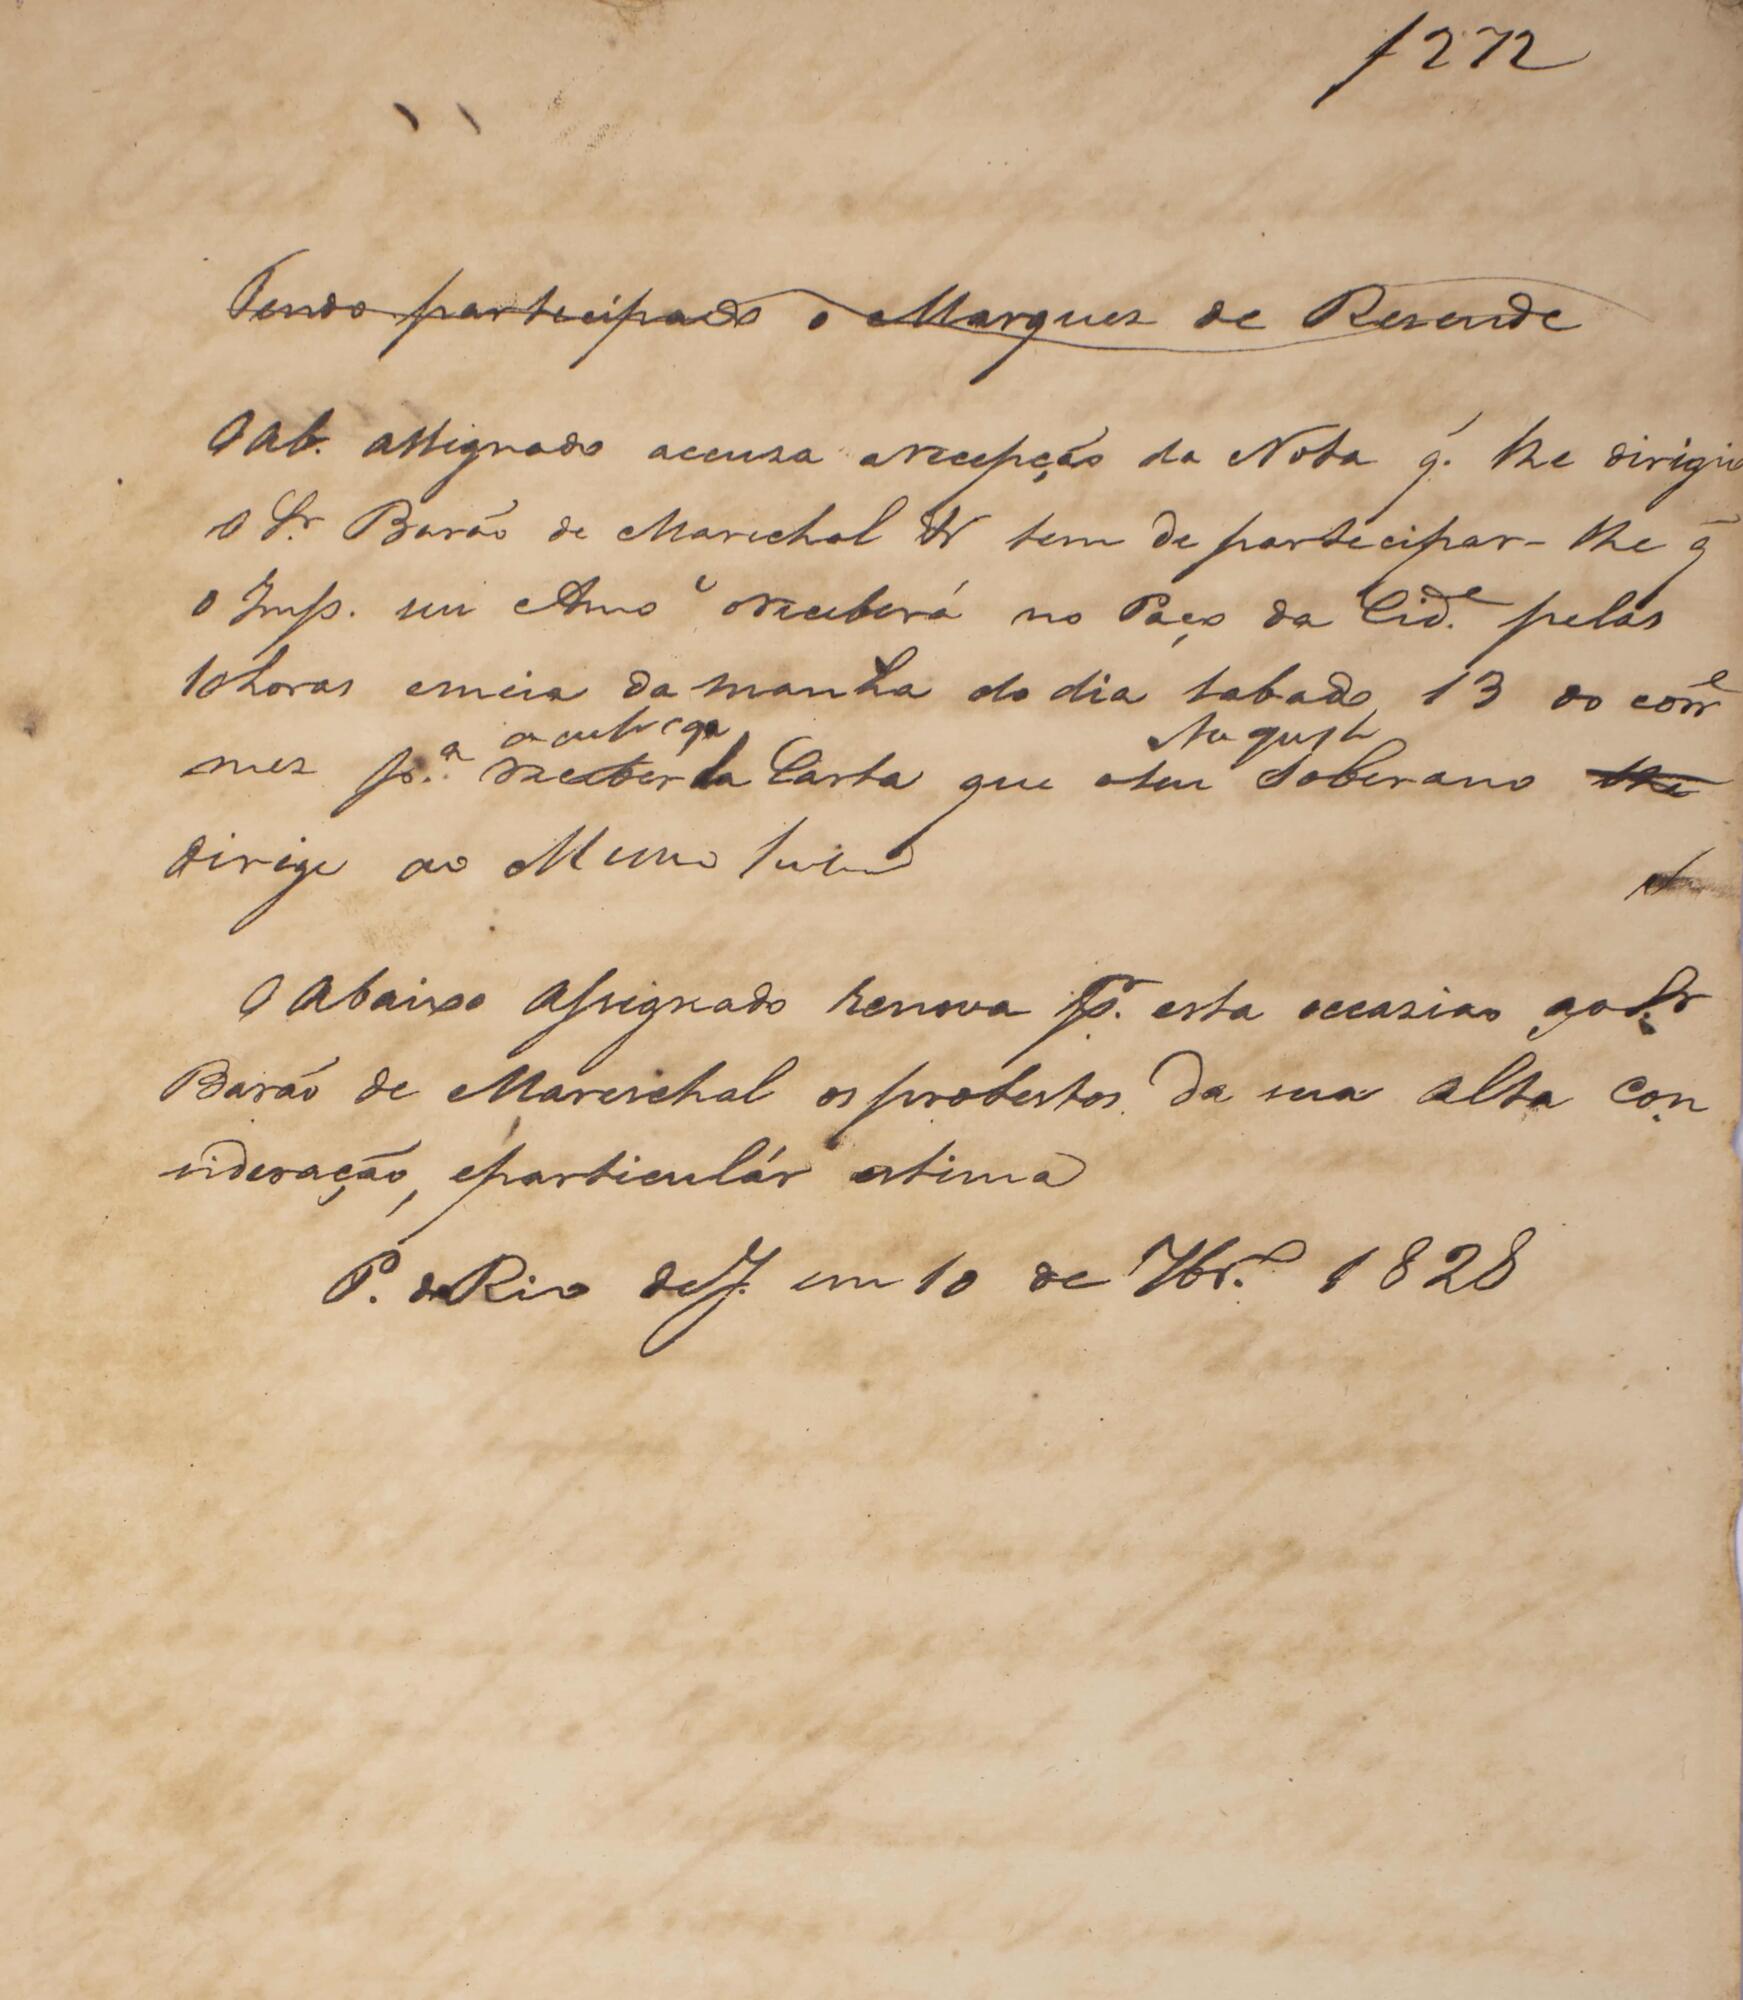 f 272
Tendo participado o Marquez de Resende
O Ab. assignado accuza a recepção da Nota q. lhe dirigio
o Sr. Barão de Mareschal tem de participar-lhe q̃
o Imp. seu Amo o receberá no Paço da Cid.e pelas
10 horas e meia da manhã do dia sabado, 13 do corr.e
a entrega August
mez p.a receber da Carta que o seu Soberano lhe
dirige ao Mesmo Senhor
O Abaixo Assignado renova p.r esta occazião ao Sr
Barão de Mareschal os protestos da sua alta con
sideração, e particulár estima
P. do Rio de J. em 10 de 7br.o 1828